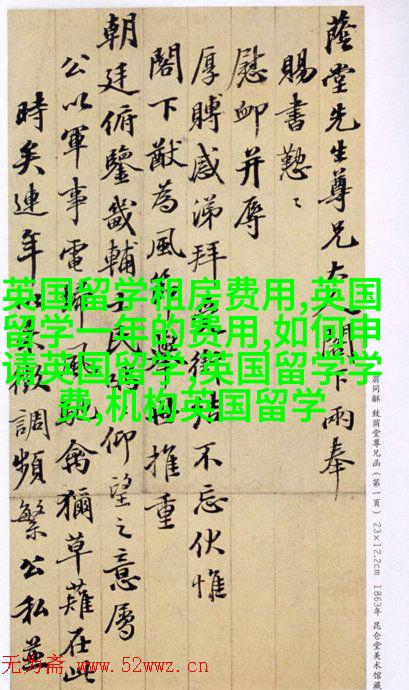 蔭堂先生尊兄大人閣下兩奉
賜書懃〻
慰卹并辱
厚賻感涕拜銜結不忘伏惟
閣下猷為風推重
朝廷俯鑒畿輔士民仰望之意屬
公以軍事電歸風馳禽獮草薙在此
時矣連年徵調頻繁公私並
英国留学租房费用,英国
留学一年的费用,如何申
请英国留学,英国留学学
费,机构英国留学
翁同龢 致荫堂尊兄函（第一页） 23×12.2cm 1863年 昆仑堂美术馆藏
无为斋 www.52wwz.cn